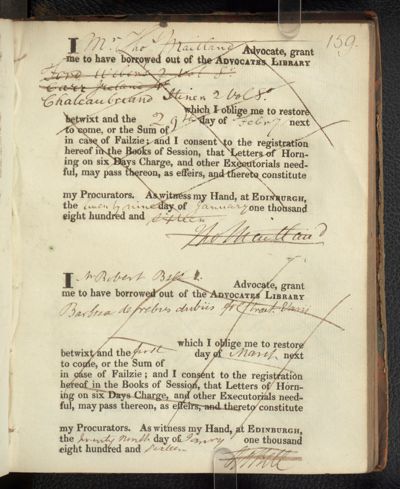 159.
I Mr. Thos Maitland Advocate, grant
me to have borrowed out of the ADVOCATES LIBRARY
2 Vol 8o.
Chateaubriand 2 Vol 8o
which I oblige me to restore
betwixt and the 29th day of Febry next
to come, or the Sum of
in case of Failzie; and I consent to the registration
hereof in the Books of Session, that Letters of Horn-
ing on six Days Charge, and other Executorials need-
ful, may pass thereon, as effeirs, and thereto constitute
my Procurators. As witness my Hand, at EDINBURGH,
the twenty nine day of January one thousand
eight hundred and sixteen
Thos Maitland
I Mr Robert Bell Advocate, grant
me to have borrowed out of the ADVOCATES LIBRARY
Barbosa de rebus dubiis
which I oblige me to restore
betwixt and the first day of March next
to come, or the Sum of
in case of Failzie; and I consent to the registration
hereof in the Books of Session, that Letters of Horn-
ing on six Days Charge, and other Executorials need-
ful, may pass thereon, as effeirs, and thereto constitute
my Procurators. As witness my Hand, at EDINBURGH,
the twenty ninth day of Janry one thousand
eight hundred and sixteen
R Bell